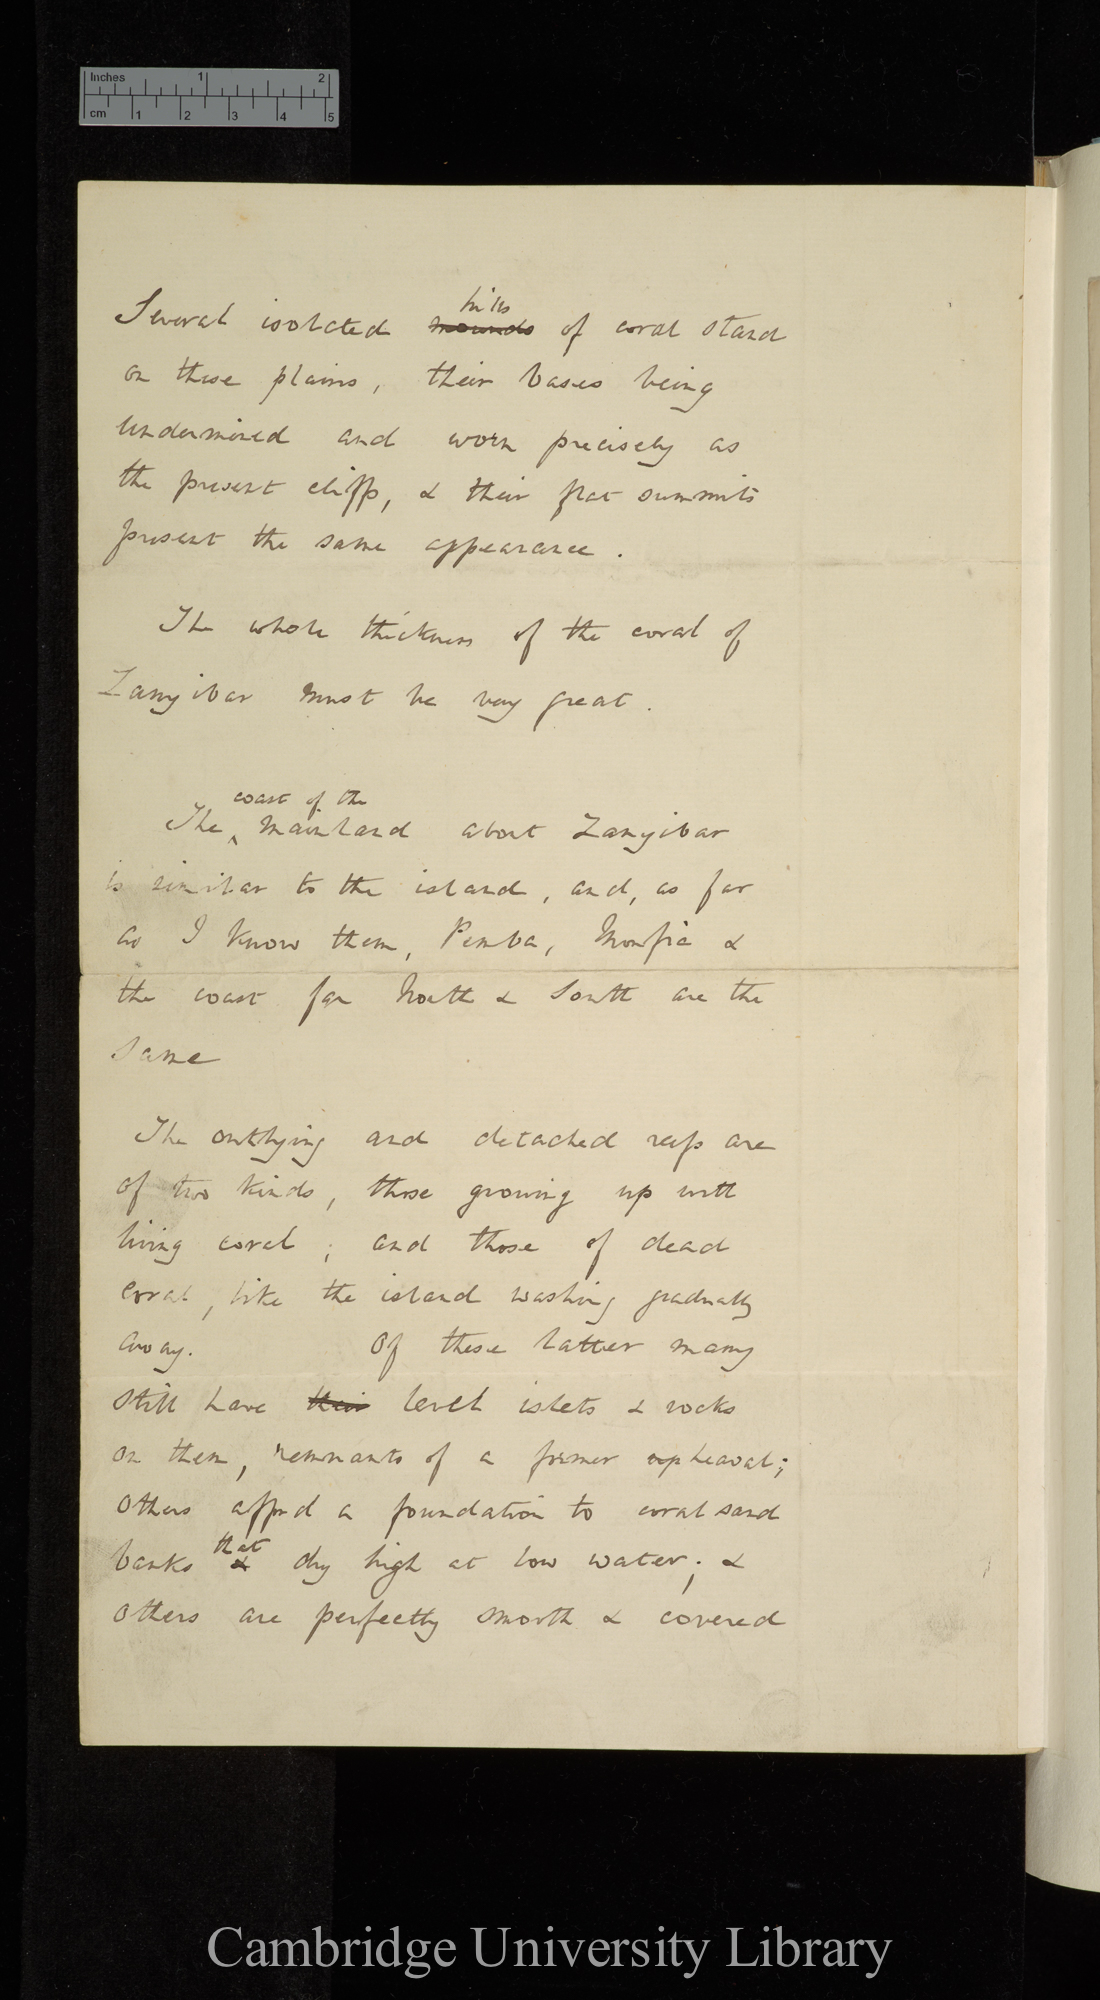 Inches 1 2
cm 1 2 3 4 5
hills
Several isolated mounds of coral stand
on these plains, their bases being
undermined and worn precisely as
the present cliffs, & their flat summits
present the same appearance.
The whole thickness of the coral of
Zanzibar must be very great.
coast of the
The ^ mainland about Zanzibar
is similar to the island, and, as far
as I know them, Pemba, Monfia &
the coast far North & South are the
same
The outlying and detached reefs are
of two kinds, those growing up with
living coral; and those of dead
coral, like the island washing gradually
away. Of these latter many
still have their level islets & rocks
on them, remnants of a former upheaval;
others afford a foundation to coral sand
that
banks & dry high at low water; &
others are perfectly smooth & covered
Cambridge University Library